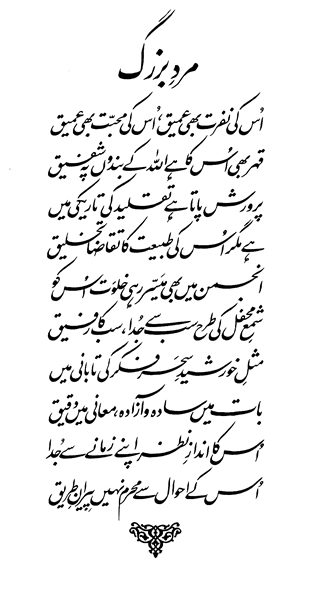 مردِ بزرگ
اُس کی نفرت بھی عمیق، اُس کی محبّت بھی عمیق
قہر بھی اُس کا ہے اللہ کے بندوں پہ شفیق
پرورش پاتا ہے تقلید کی تاریکی میں
ہے مگر اُس کی طبیعت کا تقاضا تخلیق
انجمن میں بھی میسّر رہی خلوت اُس کو
شمعِ محفل کی طرح سب سے جُدا، سب کا رفیق
مثلِ خورشیدِ سحر فکر کی تابانی میں
بات میں سادہ و آزادہ، معانی میں دقیق
اُس کا اندازِ نظر اپنے زمانے سے جُدا
اُس کے احوال سے محرم نہیں پیرانِ طریق